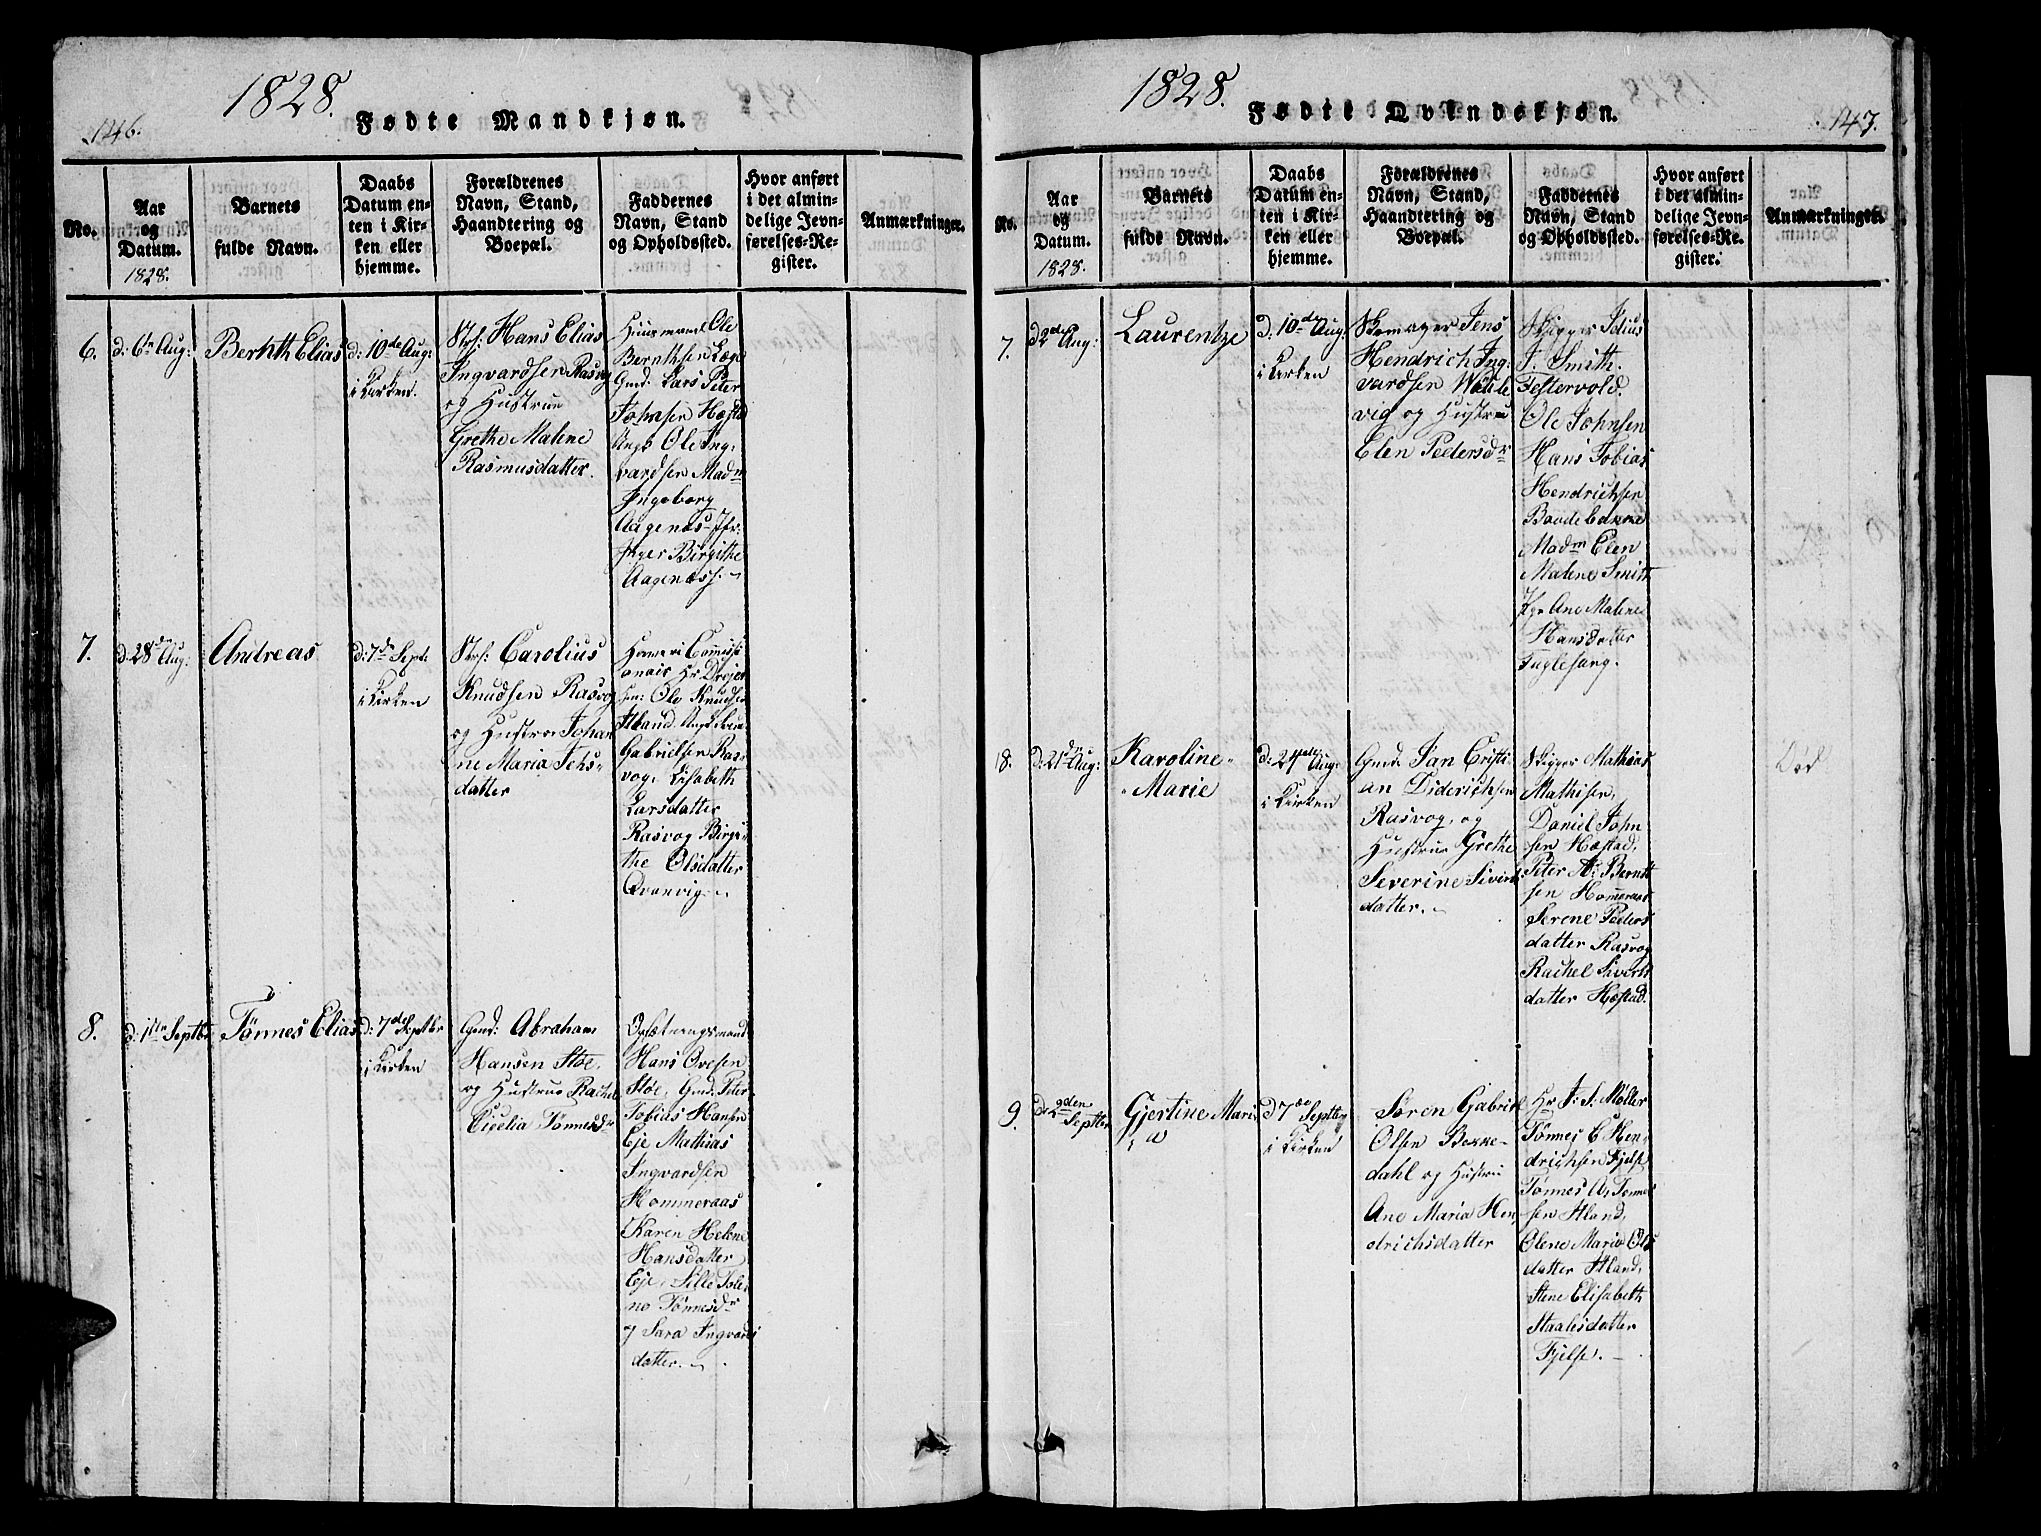 146.
1828.
Fødte Mandkjøn.
No.
Aar
og
Datum.
1828.
Barnets
fulde Navn.
Daabs
Datum en-
ten i Kir-
ken eller
hjemme.
Forældrenes
Navn, Stand,
Haandtering og
Boepæl.
Faddernes
Navn, Stand
og Opholdssted.
Hvor anført
i det almin-
delige Jevn-
førelses-Re-
gister.
Anmærkninger.
6.
d: 6te Aug:
Bernth Elias
d: 10de Aug:
i Kirken.
Hans Elias
Ingvardsen Rasvog
og Hustrue
Grethe Malene
Rasmusdatter.
Huusmand Ole
Berntsen Lægd
Gmd: Lars Peter
Johnsen Hæstad
Ungk Ole Ing-
vardsen Madm
Ingeborg
Aagenæs Jfr:
Birgithe
Aagenæs.
7.
d. 28de Aug:
Andreas
d: 7de Sept:
i Kirken
Carolius
Knudsen Rasvog
og Hustrue Johan
ne Maria Jens-
datter
Ole Knudsen
Itland. Ungk
Gabrielsen Ras-
vog. Lisabeth
Larsdatter
Rasvog Birgi-
the Olsdatter
Qvanvig
8.
d: 1ste Septbr
Tønnes Elias
d: 7de Septbr
i Kirken
Gmd: Abraham
Hansen Støe.
og Hustrue Rachel
Cicelia Tønnesdr
Opsætningsmand
Hans Ovesen
Støe, Gmd: Peter
Tobias Hansen
Eje Mathias
Ingvardsen
Hommeraas
Karen Helene
Hansdatter
Eje, Sille Tole-
ne Tønnesdr
og Sara Ingvards
datter.
1828.
Fødte Qvindekjøn.
147.
No.
Aar
og
Datum.
1828.
Barnets
fulde Navn.
Daabs
Datum en-
ten i Kir-
ken eller
hjemme.
Forældrenes
Navn, Stand,
Haandtering og
Boepæl.
Faddernes
Navn, Stand
og Opholdssted.
Hvor anført
i det almin-
delige Jevn-
førelses-Re-
gister.
Anmærkninger.
7.
d 2de Aug:
Laurentze
d: 10de Aug:
i Kirken
Skomager Jens
Hendrich Ing-
vardsen
vig og Hustrue
Elen Pedersdr
Skipper Julius
J. Smith.
Festervold.
Ole Johnsen
Hans Tobias
Hendrichsen
Boudebakke
Madm Elen
Malene Smith
Jfr Ane Malene
Hansdatter
Fuglesang.
8.
d: 21de Aug:
Karoline
Marie
d: 24de Aug:
i Kirken
Gmd. Jan Cristi-
an Diderichsen
Rasvog, og
Hustrue Grethe
Severine Siverts
datter.
Skipper Mathias
Mathisen,
Daniel John
sen Hæstad,
Peter A: Bernt
sen Hommeraas
Serene Peders
datter Rasvog
Rachel Siverts
datter Hæstad.
Død
9.
d: 2den Septbr
Gjertine Mari-
a
d 7de Septbr
i Kirken
Søren Gabriel
Olsen Bakke-
dahl og Hustrue
Ane Maria Hen-
drichsdatter
Hr J: S: Møller
Tønnes C Hen-
drichsen Fjelse
Tønnes A: Tønnes
sen Itland,
Olene Maria Ols
datter Itland,
Stene Elisabeth
Staalesdatter
Fjelse.